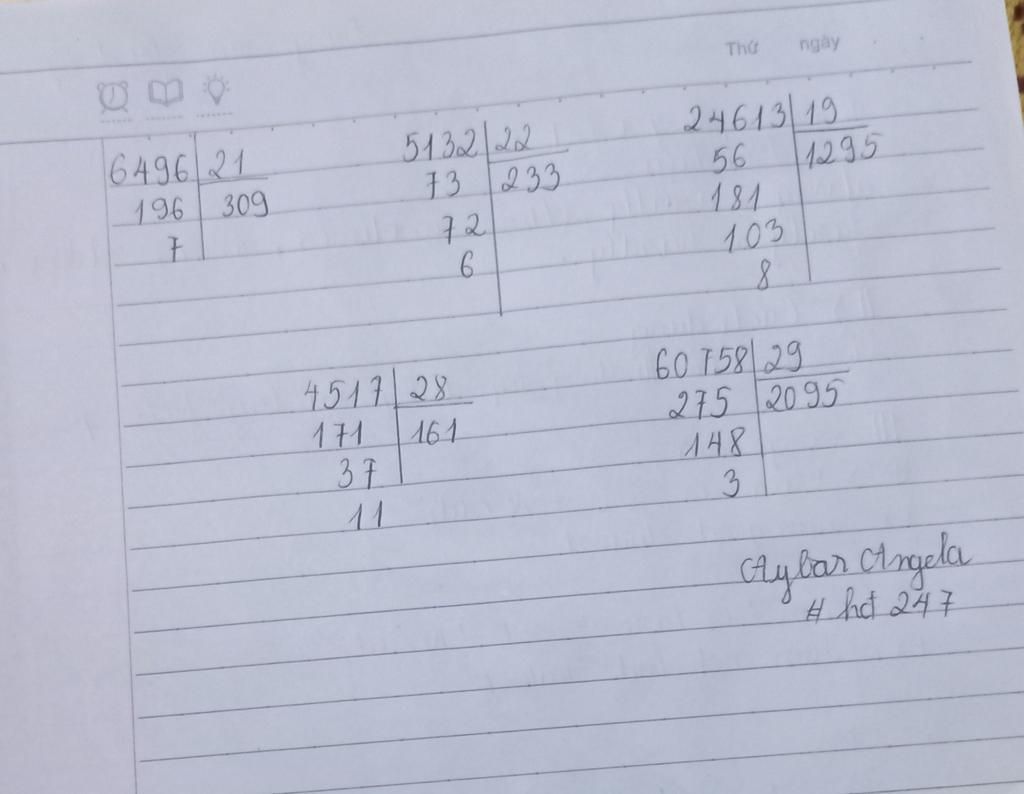 Thứ ngày
6496 21
196 309
7
5132 22
73 233
72
6
24613 19
56 1295
181
103
8
4517 28
171 161
37
11
60758 29
275 2095
148
3
Aybar Angela
# hđ 247